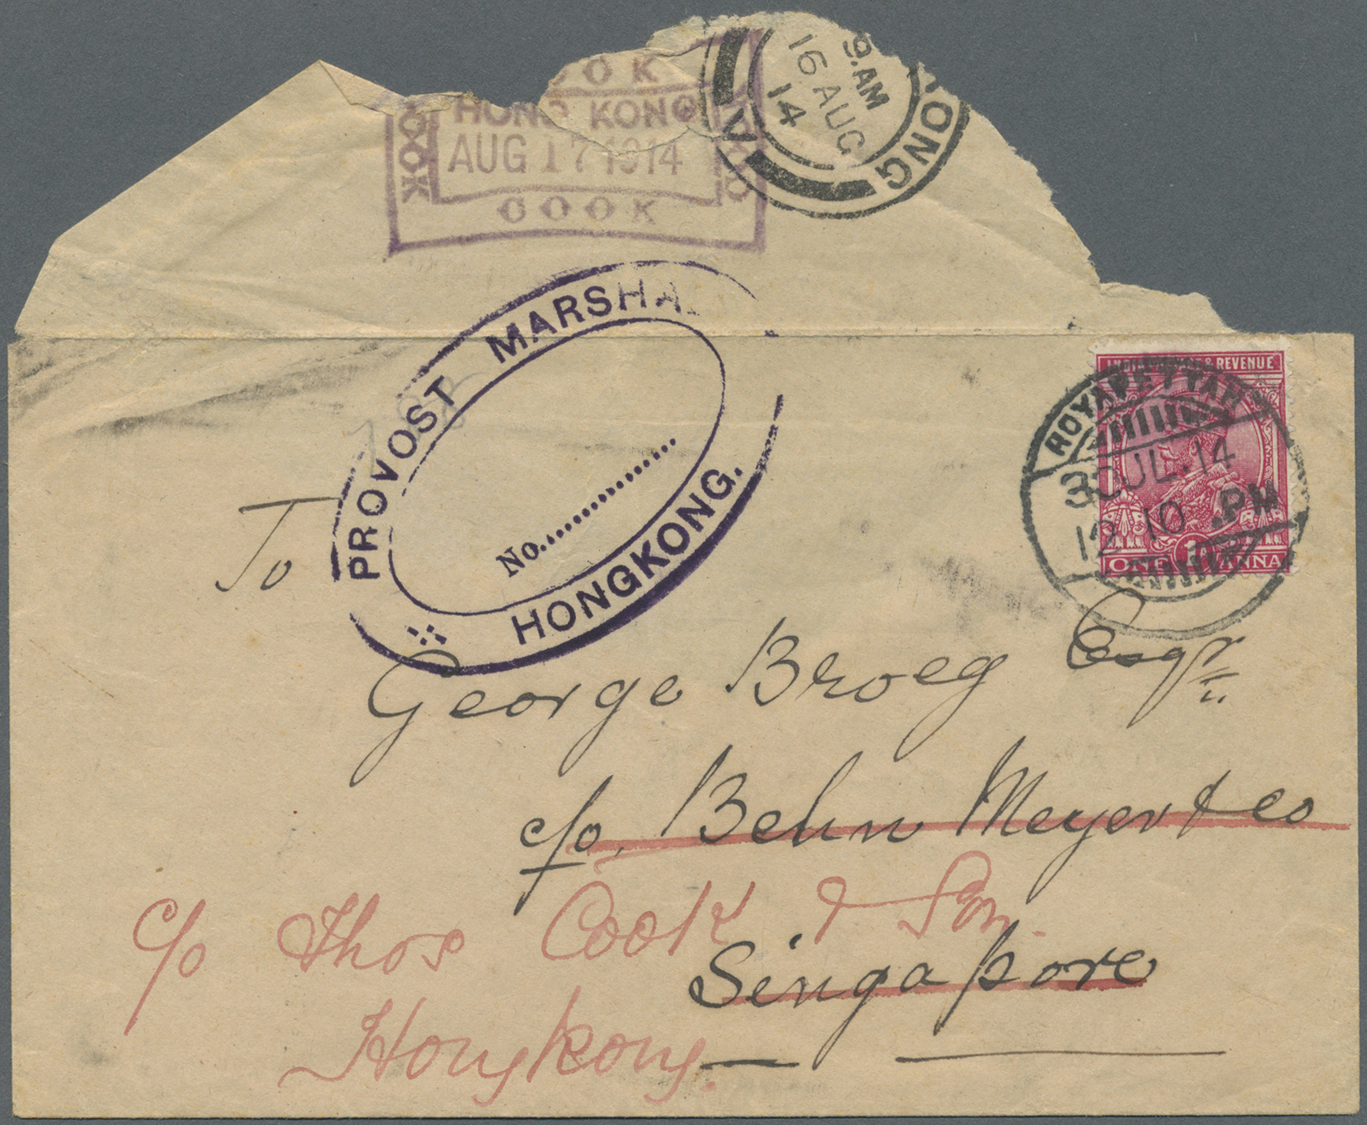 COOK
HONG KONG
AUG 17 1914
COOK
COOK
COOK
9. AM
16 AUG
14
KONG
A
PROVOST MARSHAL
No.....................
HONGKONG.
INDIA & REVENUE
ONE ANNA
ROYAPETTAH
3 JUL. 14
12. 10 PM
To
George Broeg Esqr.
c/o. Behn Meyer & Co
c/o Thos Cook & Son.
Singapore
Hongkong.